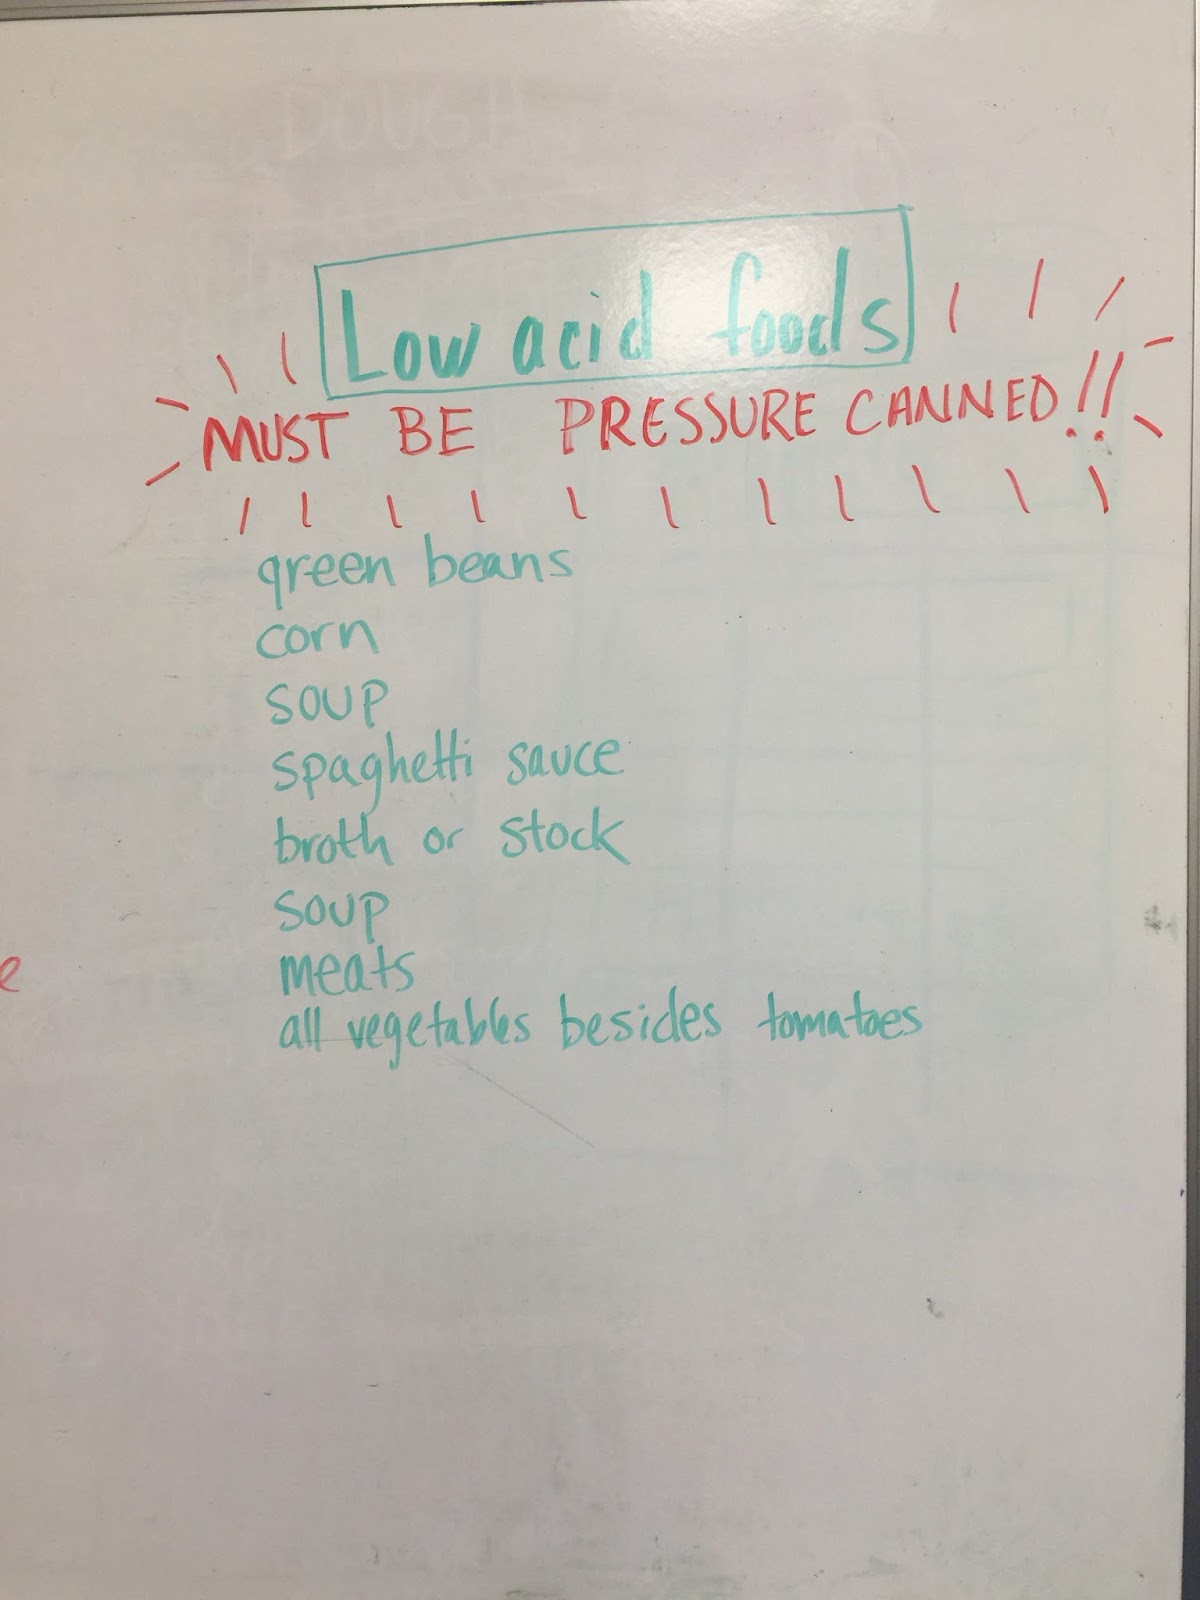 DOUGH
Low acid foods
MUST BE PRESSURE CANNED!!
green beans
corn
soup
spaghetti sauce
broth or stock
soup
meats
all vegetables besides tomatoes
e